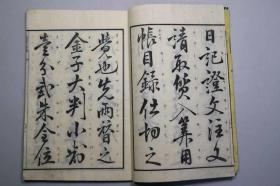 日記證文注文
請取質入算用
帳目録仕切之
覺也先兩替之
金子大判小判
壹分弐朱金位